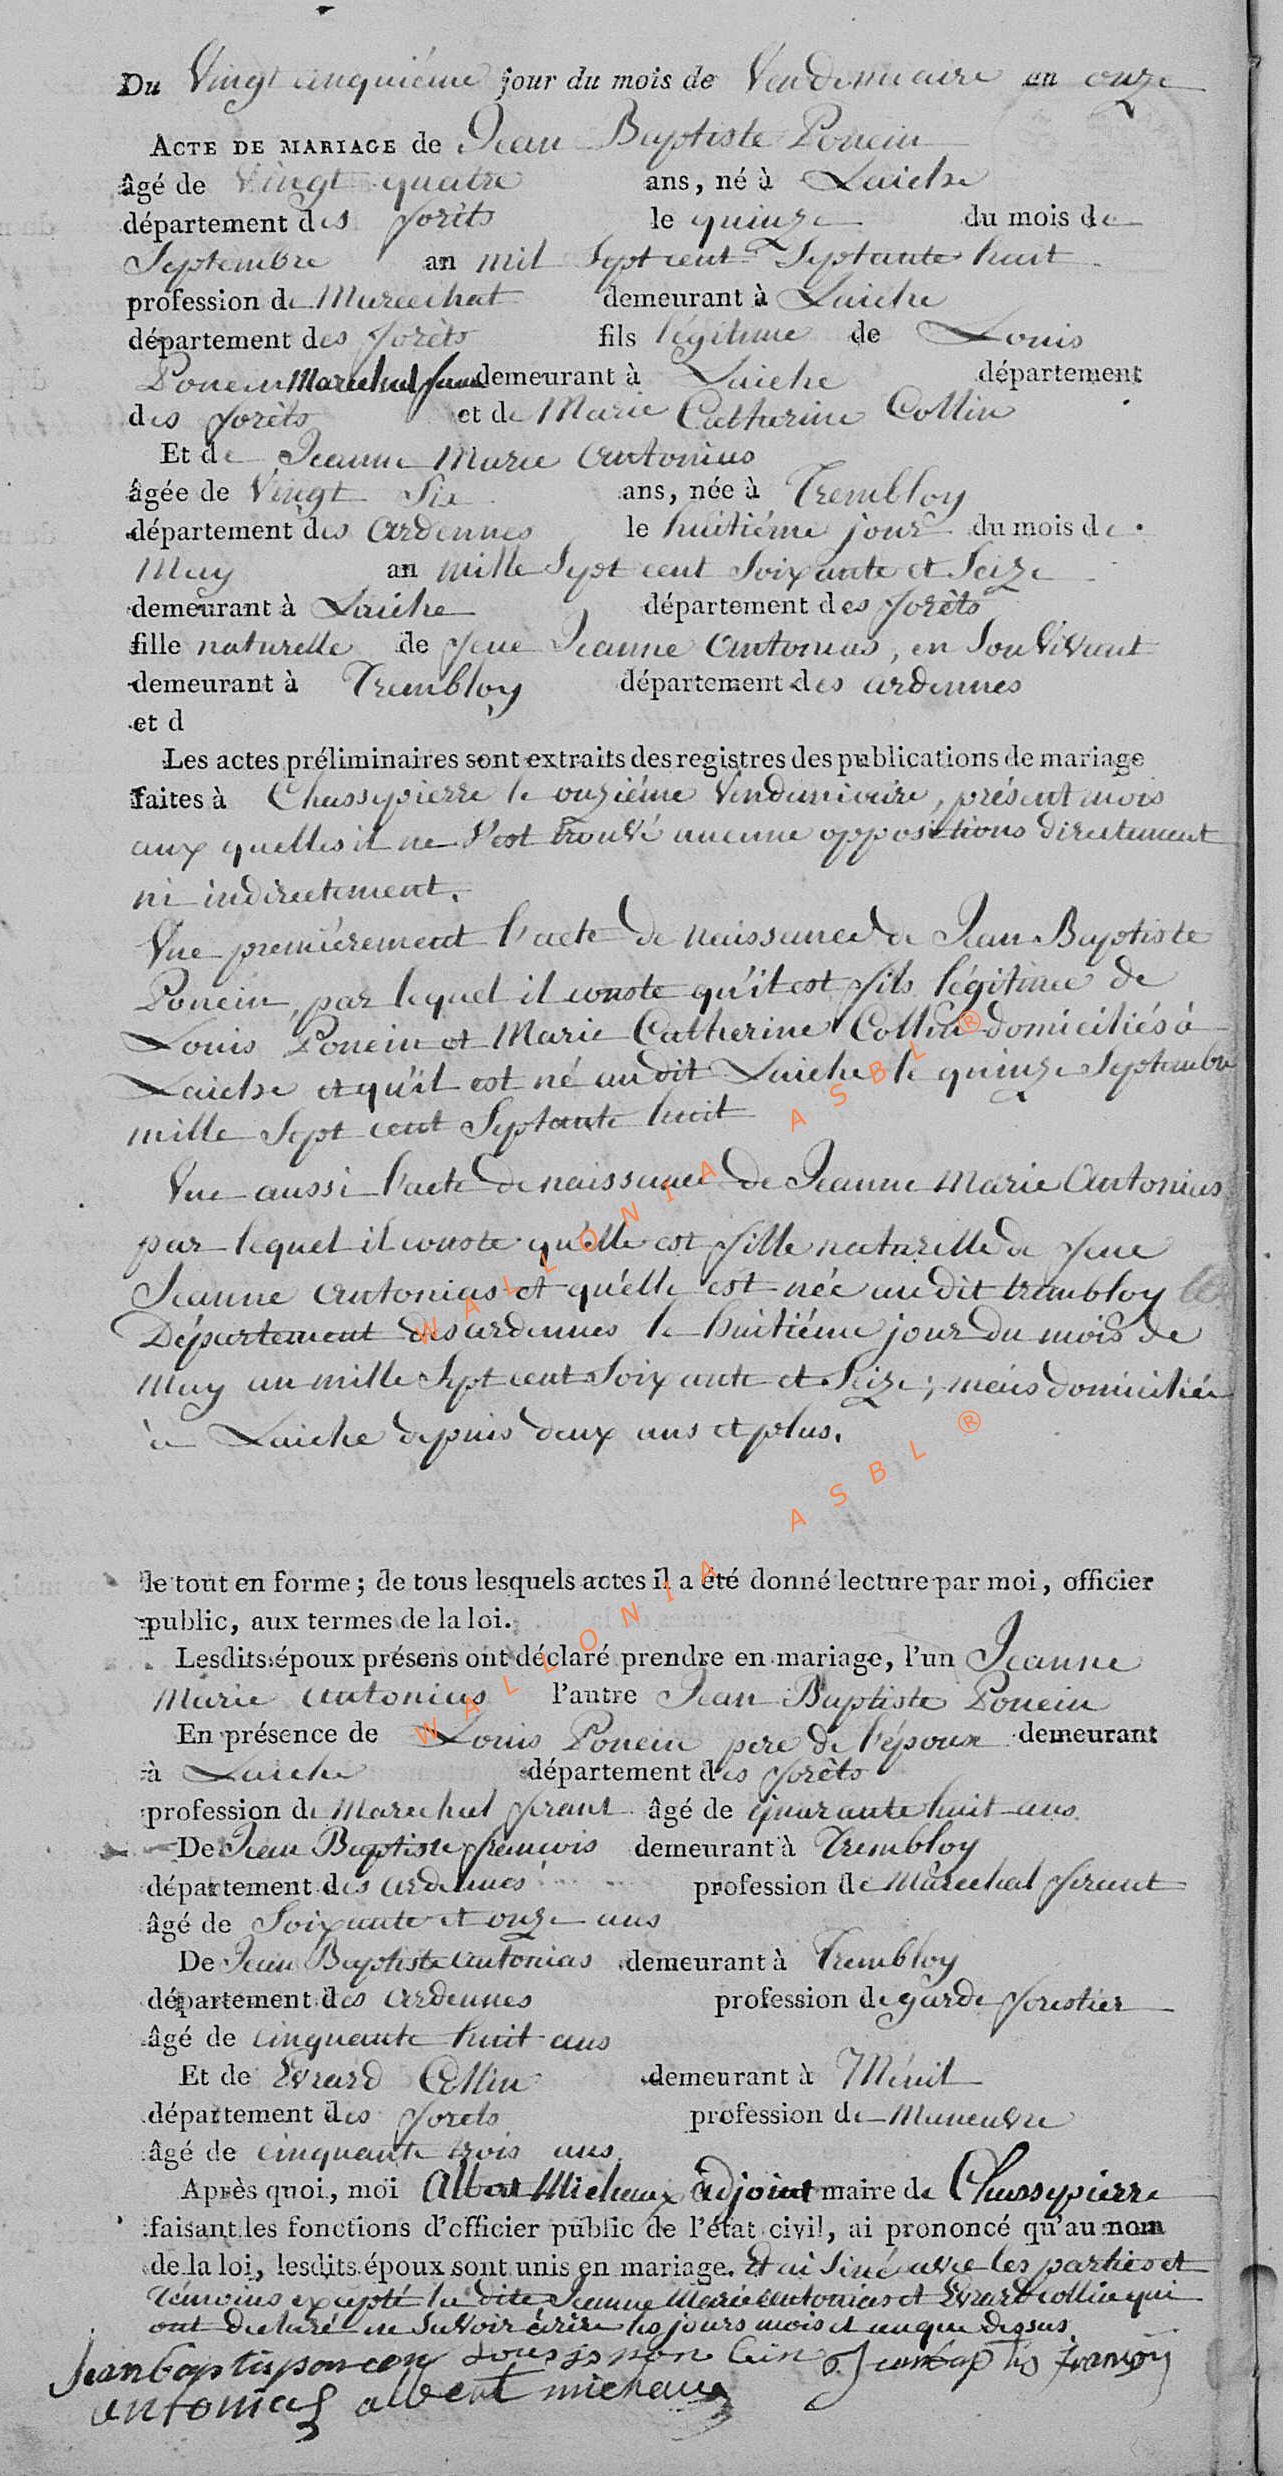 Du Vingt cinquiéme jour du mois de Vendemiaire an onze
ACTE DE MARIAGE de Jean Baptiste Poncin
âgé de Vingt quatre ans, né à Laiche
département des forêts le quinze du mois de
Septembre an mil Sept cent Septante huit
profession de Marechal demeurant à Laiche
département des forêts fils légitime de Louis
Poncin Marechal demeurant à Laiche département
des forêts et de Marie Catherine Collin
Et de Jeanne Marie Antonius
âgée de Vingt Six ans, née à Trembloy
département des ardennes le huitiéme jour du mois de
May an mille Sept cent Soixante et Seize
demeurant à Laiche département des forêts
fille naturelle de feue Jeanne Antonius, en Son Vivant
demeurant à Trembloy département des ardennes
et d
Les actes préliminaires sont extraits des registres des publications de mariage
faites à Chassepierre le onziéme Vendemiaire, présent mois
aux quelles il ne s'est trouvé aucune oppositions directement
ni indirectement.
Vue premiérement l'acte de naissance de Jean Baptiste
Poncin, par lequel il conste qu'il est fils légitime de
Louis Poncin et Marie Catherine Collin domiciliés à
Laiche et qu'il est né au dit Laiche le quinze Septembre
mille Sept cent Septante huit
Vue aussi l'acte de naissance de Jeanne Marie Antonius
par lequel il conste qu'elle est fille naturelle de feue
Jeanne Antonias et qu'elle est née au dit trembloy
Département des ardennes le huitiéme jour du mois de
May an mille Sept cent Soixante et Seize; mais domiciliée
à Laiche depuis deux ans et plus.
le tout en forme; de tous lesquels actes il a été donné lecture par moi, officier
public, aux termes de la loi.
Lesdits époux présens ont déclaré prendre en mariage, l'un Jeanne
Marie Antonius l'autre Jean Baptiste Poncin
En présence de Louis Poncin pere de l'époux demeurant
à Laiche département des forêts
profession de Marechal ferant âgé de quarante huit ans
De Jean Baptiste françois demeurant à Trembloy
département des ardennes profession de Marechal ferant
âgé de Soixante et onze ans
De Jean Baptiste Antonias demeurant à Trembloy
département des ardennes profession de garde forestier
âgé de cinquante huit ans
Et de Evrard Collin demeurant à Ménil
département des forets profession de Maneuvre
âgé de cinquante trois ans
Après quoi, moi Albert Michaux adjoint maire de Chassepierre
faisant les fonctions d'officier public de l'état civil, ai prononcé qu'au nom
de la loi, lesdits époux sont unis en mariage. Et ai Siné avec les parties et
témoins excepté la dite Jeanne Marie Antonias et Evrard Collin qui
ont declaré ne Savoir écrire les jours mois et an que dessus.
Jean baptis poncen Jean bap tis françoy
antonias albert michaux
WALLONIA ASBL ®
WALLONIA ASBL ®